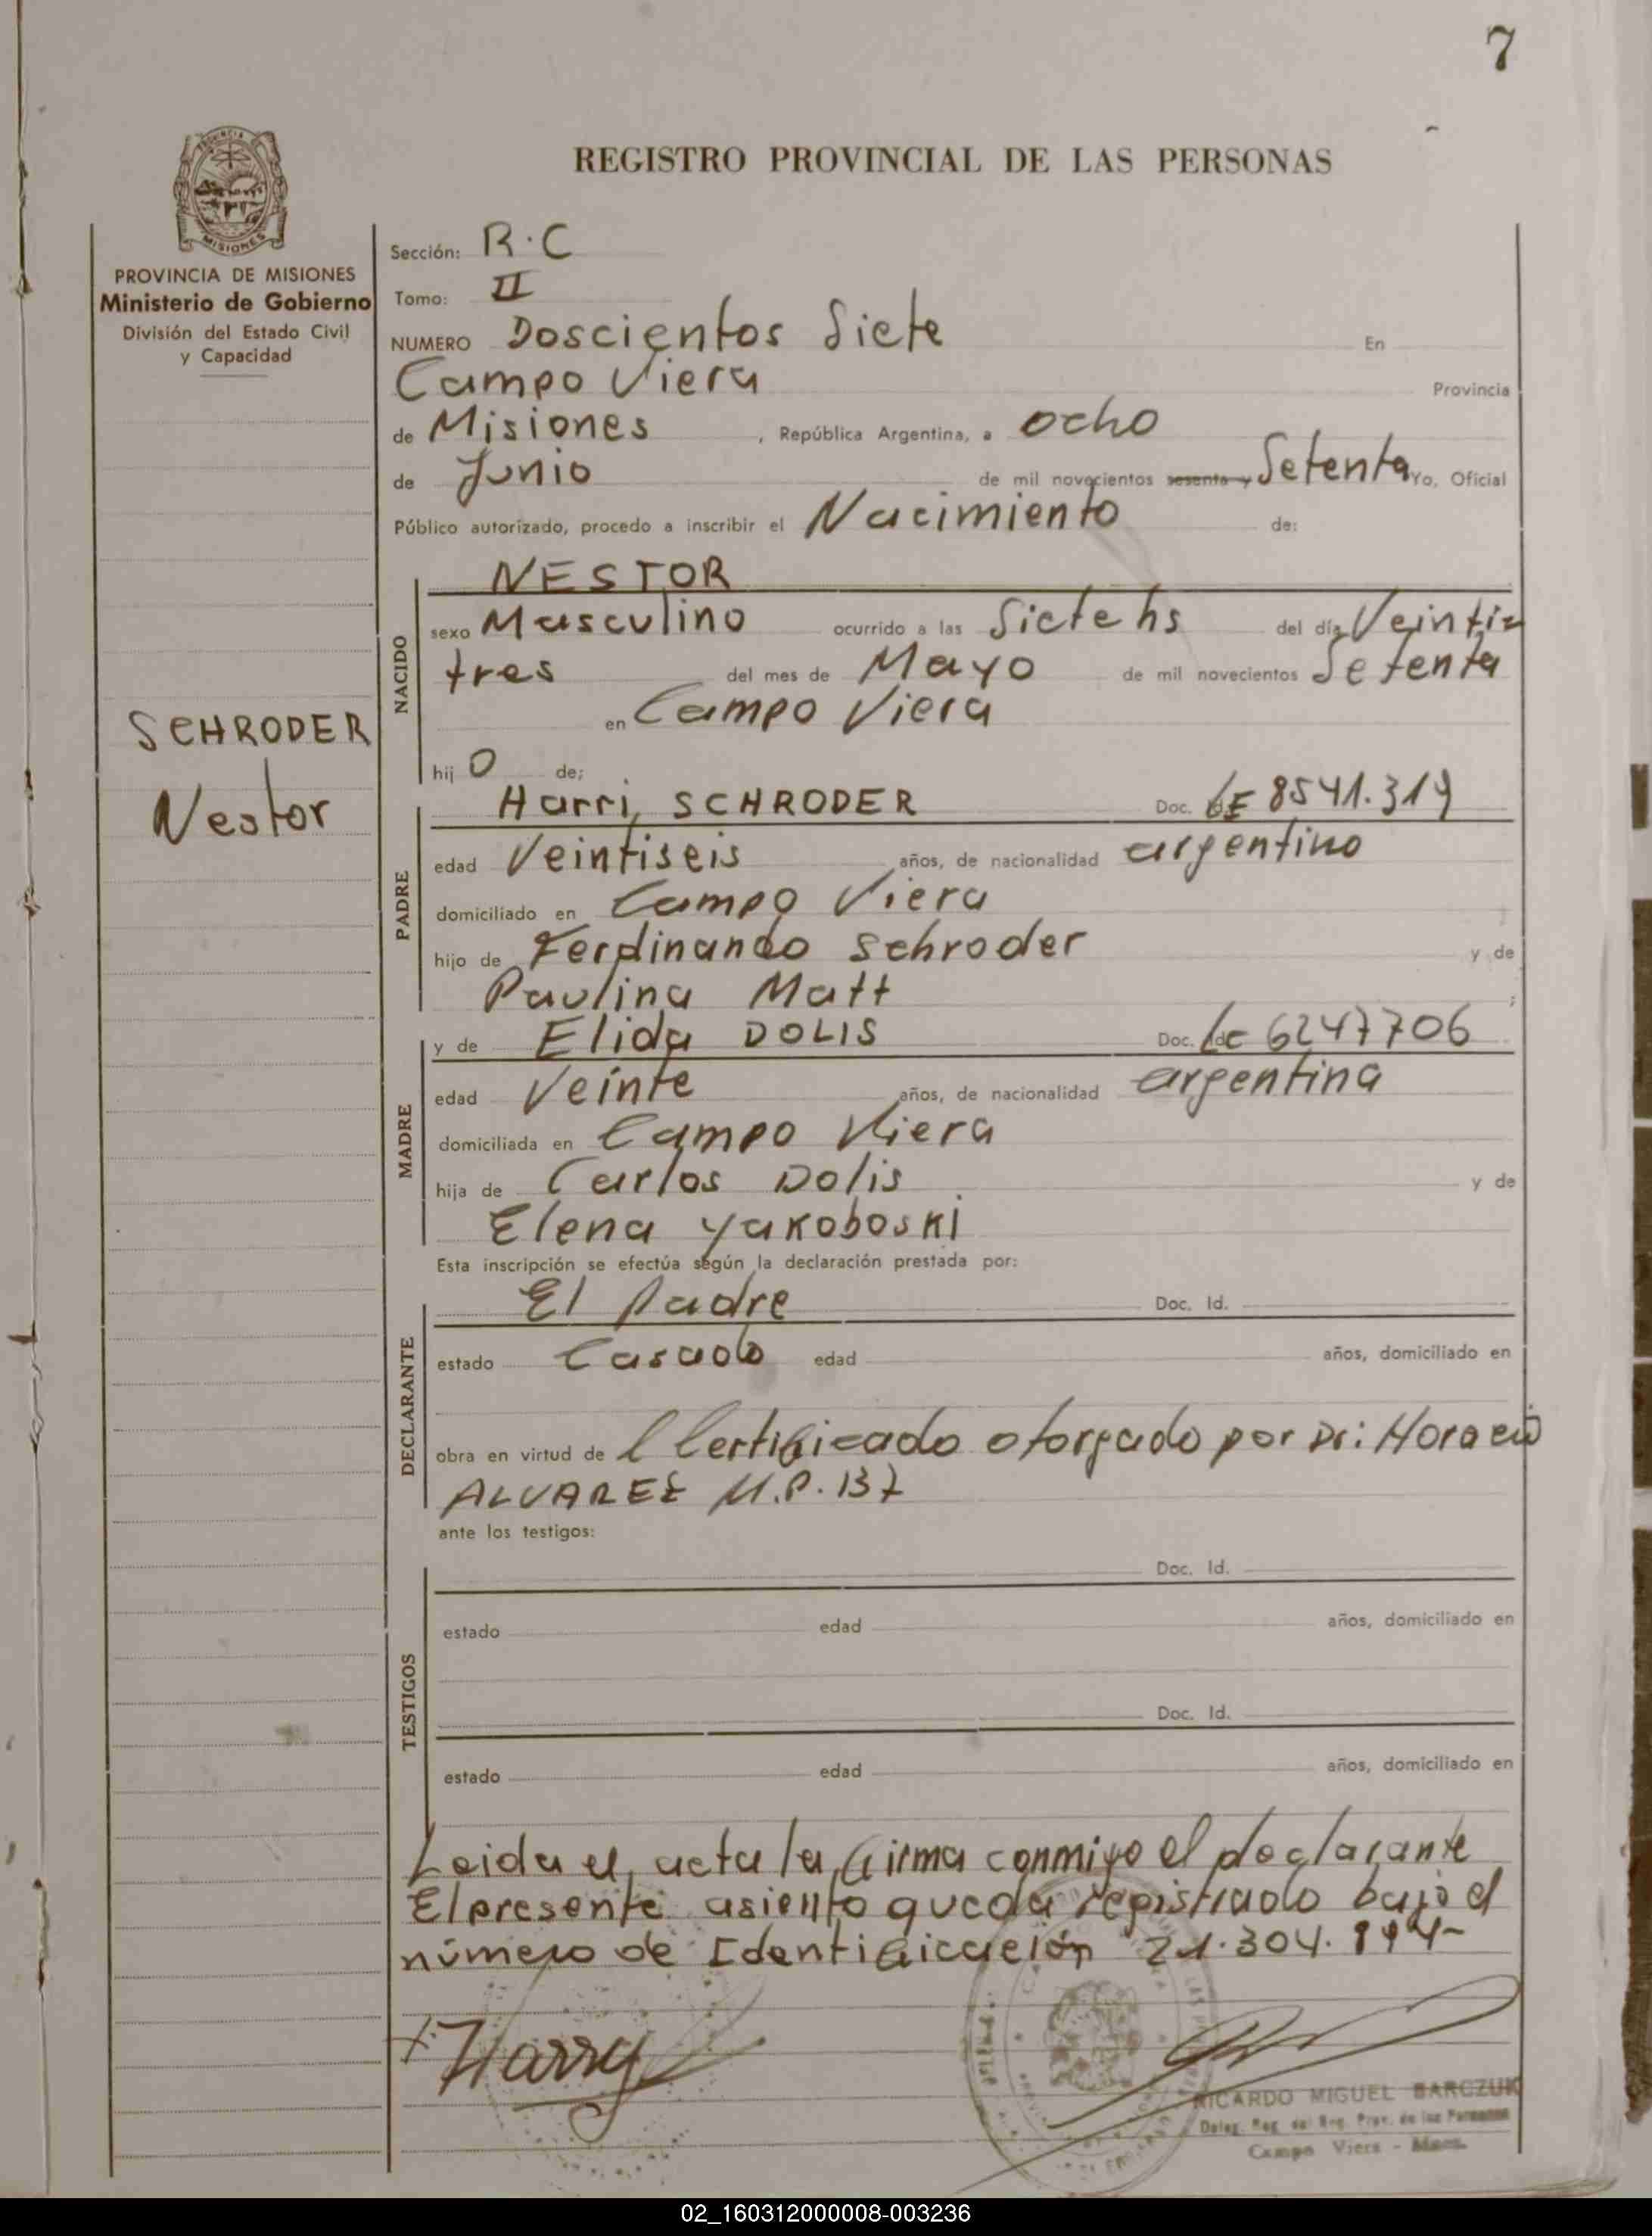 7
REGISTRO PROVINCIAL DE LAS PERSONAS
PROVINCIA
MISIONES
PROVINCIA DE MISIONES
Ministerio de Gobierno
División del Estado Civil
y Capacidad
SCHRODER
Nestor
Sección: R.C
Tomo: II
NUMERO Doscientos Siete En
Campo Viera Provincia
de Misiones , República Argentina, a ocho
de Junio de mil novecientos sesenta y Setenta Yo, Oficial
Público autorizado, procedo a inscribir el Nacimiento de:
NACIDO
NESTOR
sexo Masculino ocurrido a las Siete hs del día Veinti
tres del mes de Mayo de mil novecientos Setenta
en Campo Viera
hij o de;
PADRE
Harri, SCHRODER Doc. LE 8541.319
edad Veintiseis años, de nacionalidad argentino
domiciliado en Campo Viera
hijo de Ferdinando Schroder y de
Paulina Matt ;
MADRE
y de Elida DOLIS Doc. LC 6247706
edad Veinte años, de nacionalidad argentina
domiciliada en Campo Viera
hija de Carlos Dolis y de
Elena Yakoboski
Esta inscripción se efectúa según la declaración prestada por:
DECLARANTE
El Padre Doc. Id.
estado Casado edad años, domiciliado en
obra en virtud de l Certificado otorgado por Dr: Horacio
ALVAREZ M.P. 137
ante los testigos:
TESTIGOS
Doc. Id.
estado edad años, domiciliado en
Doc. Id.
estado edad años, domiciliado en
Leida el acta la firma conmigo el declarante
El presente asiento queda registrado bajo el
número de Identificación 21.304.
Harry
RICARDO MIGUEL BARCZUK
Deleg. Reg. del Reg. Prov. de las Personas
Campo Viera - Mnes.
02_160312000008-003236